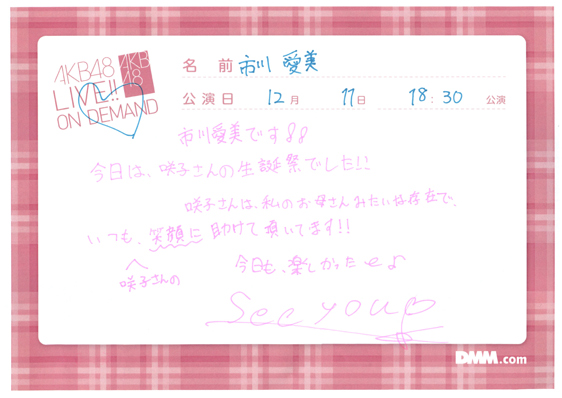 AKB48
LIVE!!
ON DEMAND
AKB
48
名 前 市川 愛美
公演日 12月 17日 18:30 公演
市川愛美です!!
今日は、咲子さんの生誕祭でした!!
咲子さんは、私のお母さんみたいな存在で、
いつも、笑顔に助けて頂いてます!!
咲子さんの
今日も、楽しかったぞ♪
See you
DMM.com